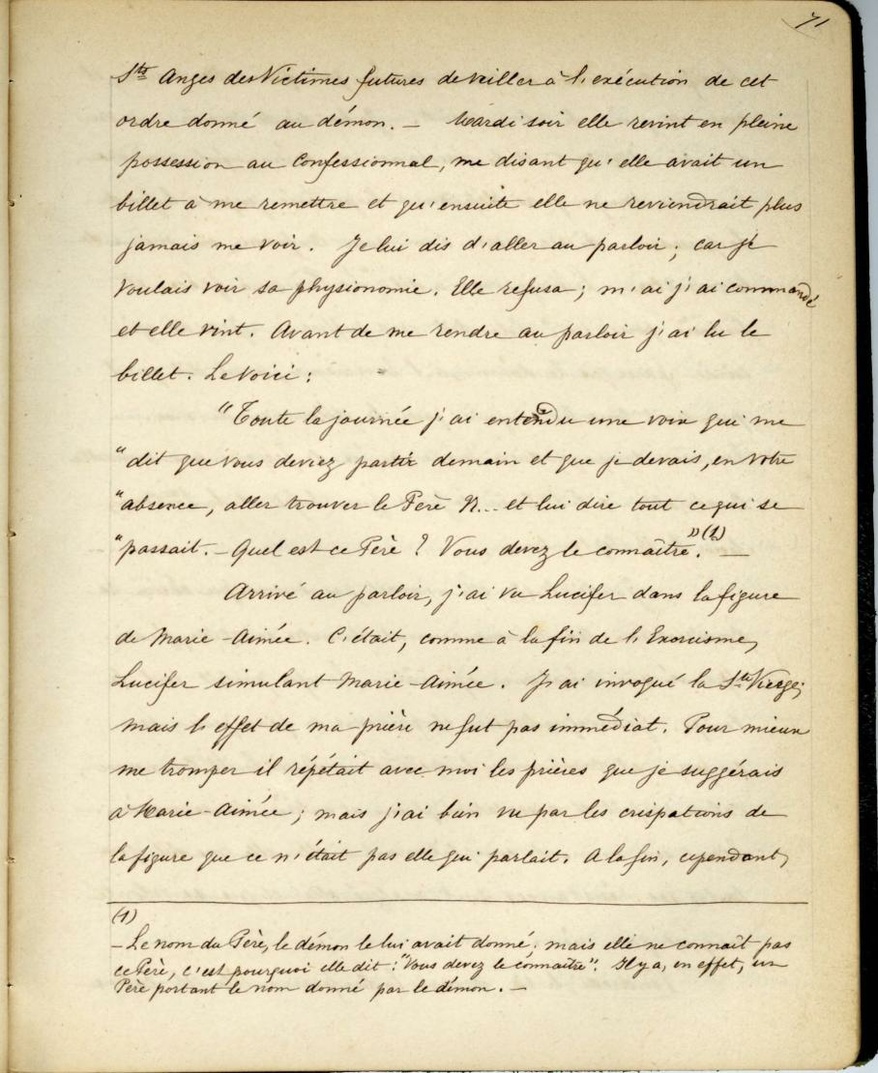 71
Sts Anges des Victimes futures de veiller à l'exécution de cet
ordre donné au démon. — Mardi soir elle revint en pleine
possession au Confessionnal, me disant qu'elle avait un
billet à me remettre et qu'ensuite elle ne reviendrait plus
jamais me voir. Je lui dis d'aller au parloir ; car je
voulais voir sa physionomie. Elle refusa ; m'ai j'ai commandé
et elle vint. Avant de me rendre au parloir j'ai lu le
billet. Le voici :
"Toute la journée j'ai entendu une voix qui me
"dit que vous deviez partir demain et que je devais, en votre
"absence, aller trouver le Père N... et lui dire tout ce qui se
"passait. — Quel est ce Père ? Vous devez le connaître." (1) —
Arrivé au parloir, j'ai vu Lucifer dans la figure
de Marie-Aimée. C'était, comme à la fin de l'Exorcisme,
Lucifer simulant Marie-Aimée. J'ai invoqué la Ste Vierge;
mais l'effet de ma prière ne fut pas immédiat. Pour mieux
me tromper il répétait avec moi les prières que je suggérais
à Marie-Aimée ; mais j'ai bien vu par les crispations de
la figure que ce n'était pas elle qui parlait. A la fin, cependant,
(1)
— Le nom du Père, le démon le lui avait donné ; mais elle ne connaît pas
ce Père, c'est pourquoi elle dit : "Vous devez le connaître". Il y a, en effet, un
Père portant le nom donné par le démon. —